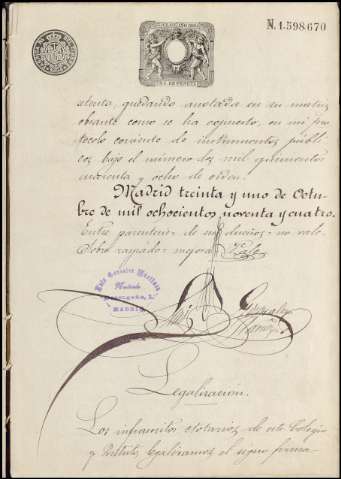 N. 1.598.670
atenta, quedando anotada en su matriz
obrante como se ha expuesto, en mi pro-
tocolo corriente de instrumentos públi-
cos bajo el número dos mil quinientos
y ocho de orden.
Madrid treinta y uno de Octu-
bre de mil ochocientos noventa y cuatro.
Entre paréntesis - de - no vale.
Sobre raspado - Vale
Luis Gonzalez Martinez
Notario
MADRID
Luis Gonzalez
Martinez
Legalización.
Los infrascritos Notarios de este Colegio
y Distrito, legalizamos el signo, firma